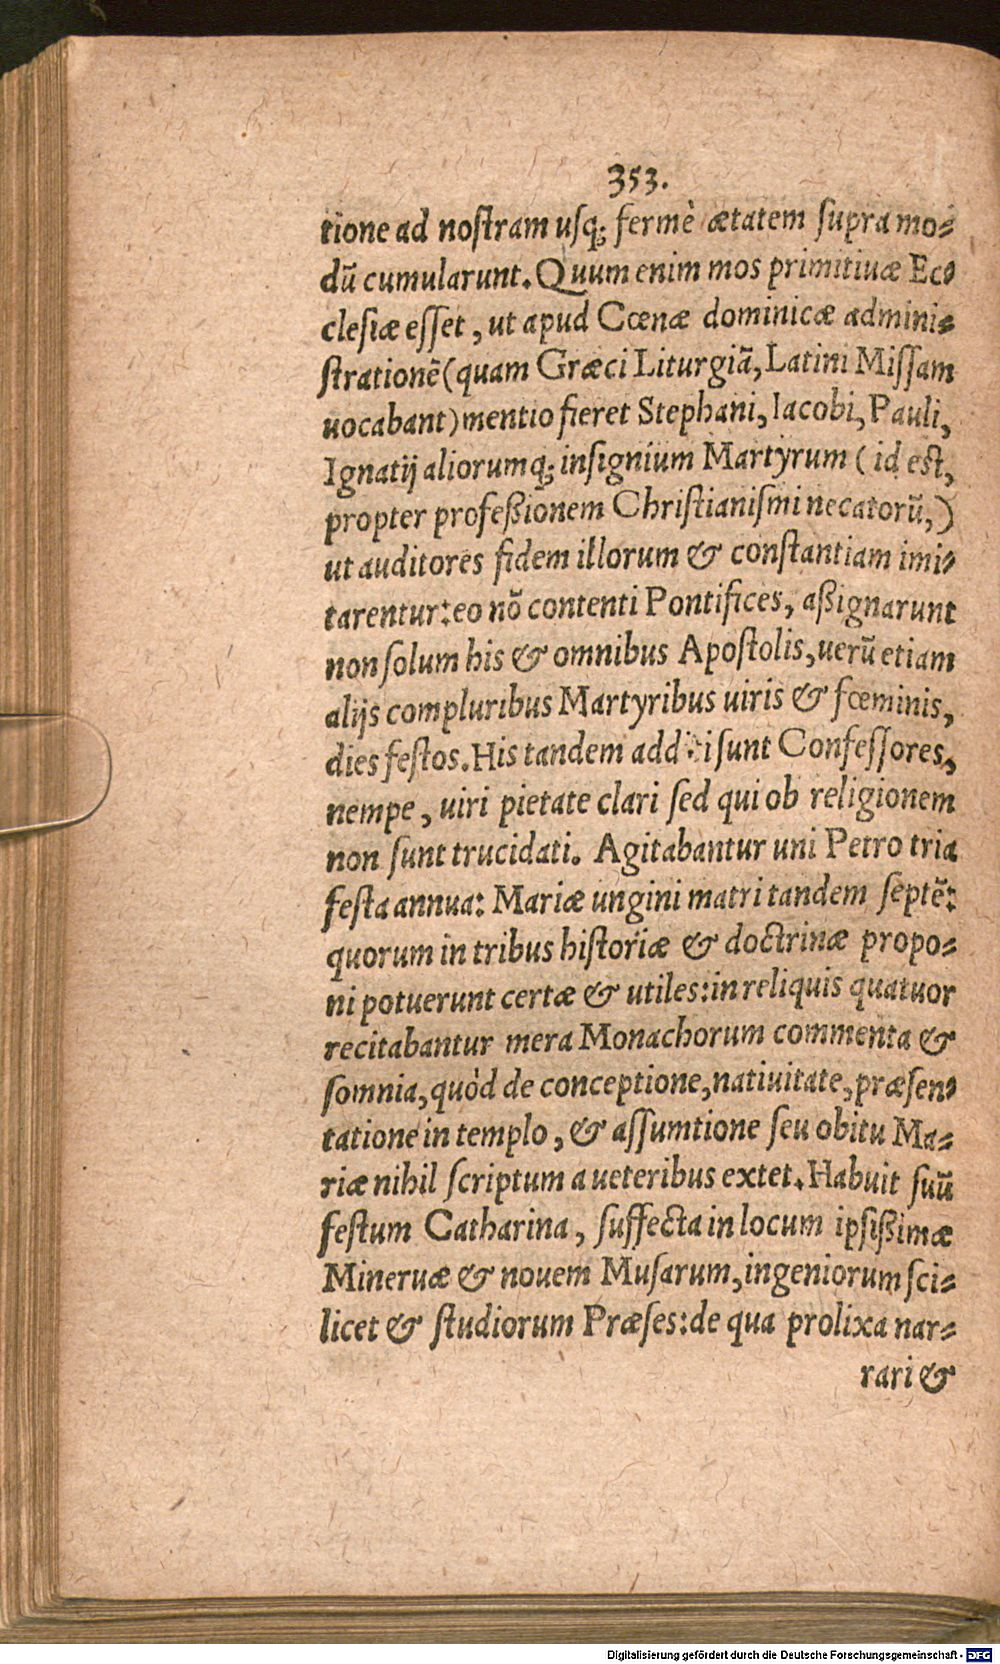 353.
tione ad nostram usq; fermè ætatem supra mo-
dũ cumularunt. Quum enim mos primitiuæ Ec-
clesiæ esset, ut apud Cœnæ dominicæ admini-
strationẽ (quam Græci Liturgiã, Latini Missam
uocabant) mentio fieret Stephani, Iacobi, Pauli,
Ignatij aliorumq; insignium Martyrum ( id est,
propter profeßionem Christianismi necatorũ,)
ut auditores fidem illorum & constantiam imi-
tarentur: eo nõ contenti Pontifices, aßignarunt
non solum his & omnibus Apostolis, uerũ etiam
alijs compluribus Martyribus uiris & fœminis,
dies festos. His tandem additi sunt Confessores,
nempe, uiri pietate clari sed qui ob religionem
non sunt trucidati. Agitabantur uni Petro tria
festa annua: Mariæ ungini matri tandem septẽ:
quorum in tribus historiæ & doctrinæ propo-
ni potuerunt certæ & utiles: in reliquis quatuor
recitabantur mera Monachorum commenta &
somnia, quòd de conceptione, natiuitate, præsen-
tatione in templo, & assumtione seu obitu Ma-
riæ nihil scriptum a ueteribus extet. Habuit suũ
festum Catharina, suffecta in locum ipsißimæ
Mineruæ & nouem Musarum, ingeniorum sci-
licet & studiorum Præses: de qua prolixa nar-
rari &
Digitalisierung gefördert durch die Deutsche Forschungsgemeinschaft - DFG